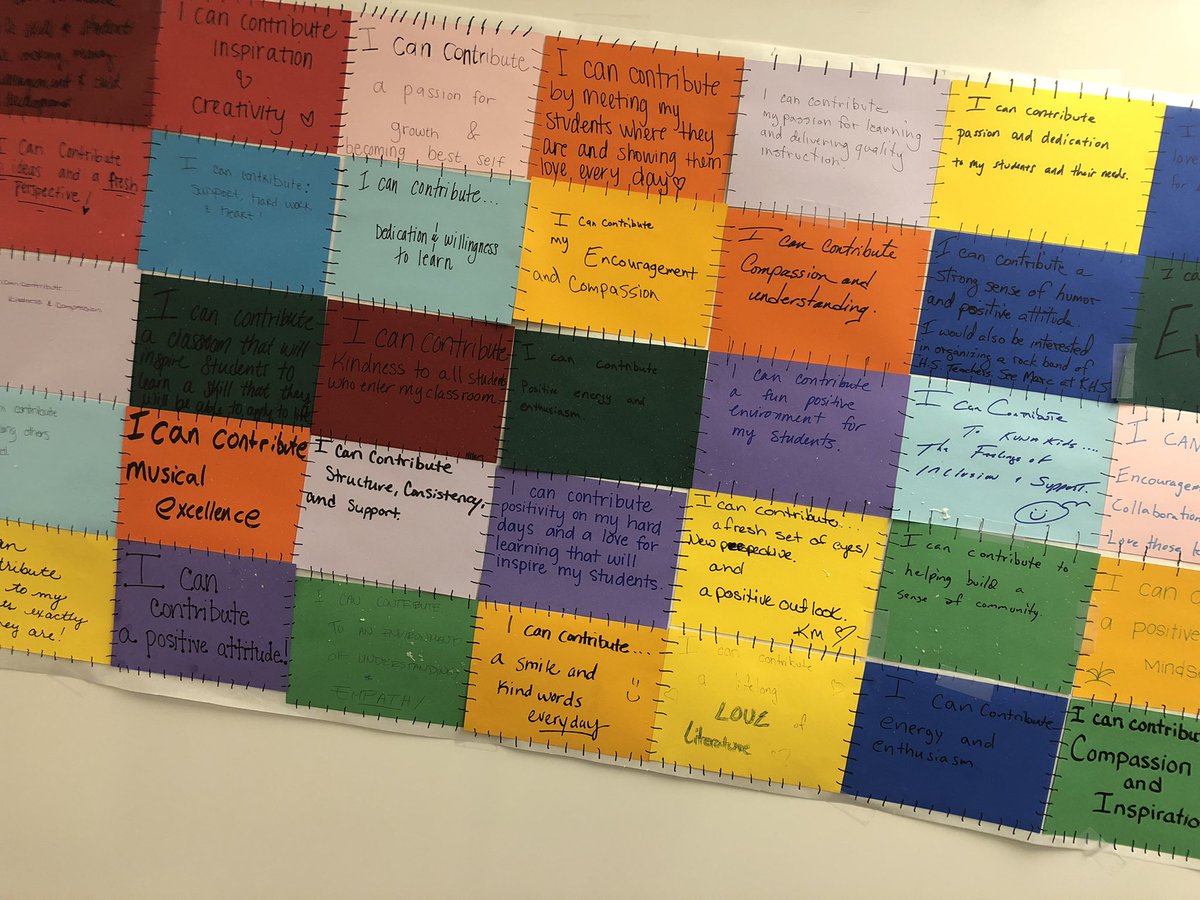 I can contribute
inspiration
&
creativity ♡
I Can Contribute
a passion for
growth &
becoming best self
I can contribute
by meeting my
students where they
are and showing them
love every day ♡
I can contribute
my passion for learning
and delivering quality
instruction
I can contribute
passion and dedication
to my students and their needs.
love
for
I Can Contribute
ideas and a fresh
perspective!
I can contribute:
Support, Hard work
& Heart!
I can contribute...
Dedication & willingness
to learn
I Can Contribute
my Encouragement
and Compassion
I can contribute
Compassion and
understanding.
I can contribute a
strong sense of humor
and positive attitude.
I would also be interested
in organizing a rock band of
H.S. Teachers. See Marc at K.H.S
can contribute
Kindness & Compassion
I can contribute
a classroom that will
inspire students to
learn a skill that they
will be able to apply to life
I can contribute
Kindness to all students
who enter my classroom
I can contribute
Positive energy and
enthusiasm
I can contribute
a fun positive
environment for
my students.
I Can Contribute
To Kids....
The Feelings of
Inclusion & Support.
I CAN
Encouragem
Collaboration
Love those k
can contribute
others
I can contribute
Musical
excellence
I can contribute
Structure, Consistency,
and Support.
I can contribute
positivity on my hard
days and a love for
learning that will
inspire my students.
I can contribute...
a fresh set of eyes/
New perspective.
and
a positive outlook.
KM ♡
I can contribute to
helping build a
sense of community.
I can c
a positive
Mindse
an
tribute
to my
exactly
hey are!
I can
contribute
a positive attitude!
I CAN CONTRIBUTE
TO AN ENVIRONMENT
OF UNDERSTANDING
&
EMPATHY
I can contribute....
a smile and
kind words
everyday
I can contribute
a lifelong
LOVE of
literature
I Can Contribute
energy and
enthusiasm
I can contribu
Compassion
and
Inspiratio